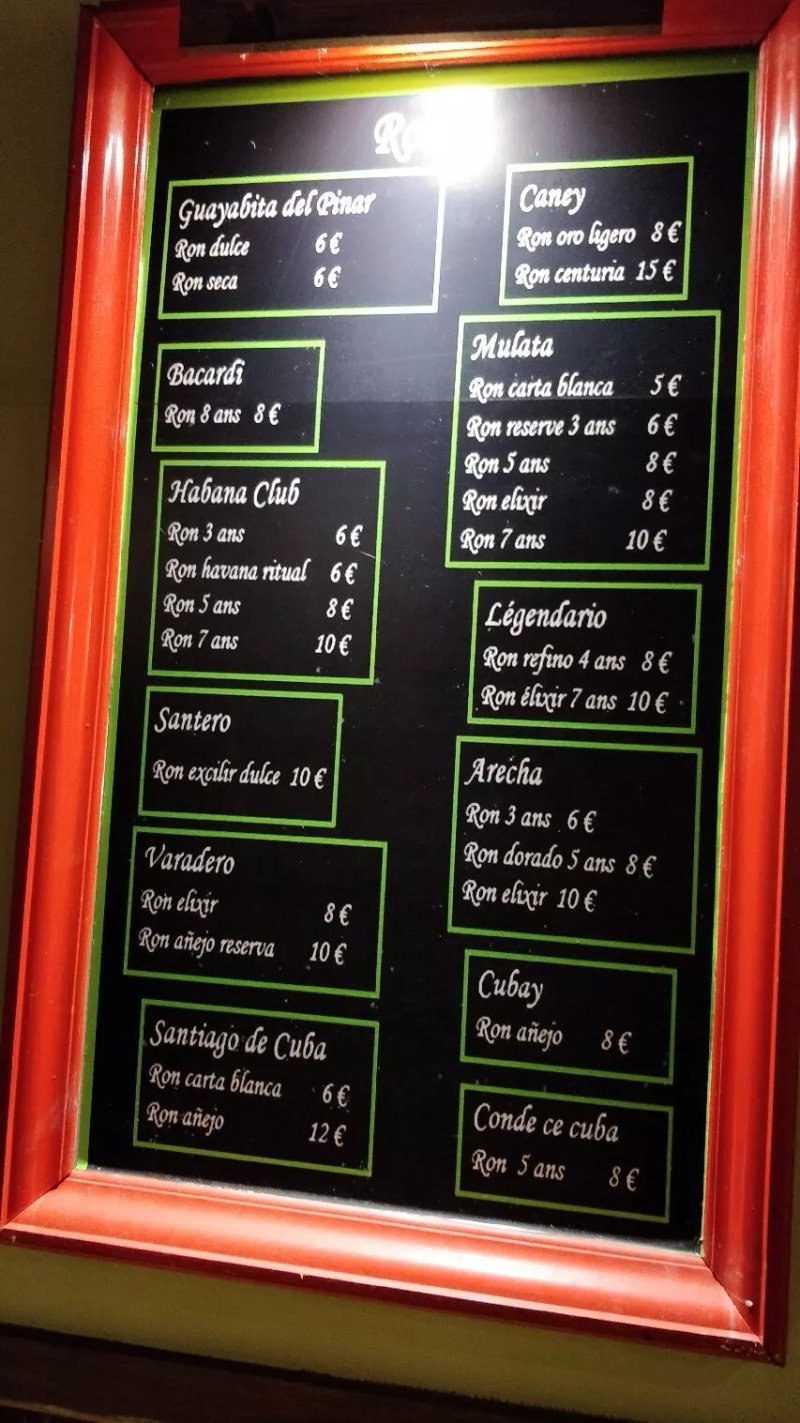 Guayabita del Pinar
Ron dulce 6 €
Ron seca 6 €
Bacardi
Ron 8 ans 8 €
Habana Club
Ron 3 ans 6 €
Ron havana ritual 6 €
Ron 5 ans 8 €
Ron 7 ans 10 €
Santero
Ron excilir dulce 10 €
Varadero
Ron elixir 8 €
Ron añejo reserva 10 €
Santiago de Cuba
Ron carta blanca 6 €
Ron añejo 12 €
Caney
Ron oro ligero 8 €
Ron centuria 15 €
Mulata
Ron carta blanca 5 €
Ron reserve 3 ans 6 €
Ron 5 ans 8 €
Ron elixir 8 €
Ron 7 ans 10 €
Légendario
Ron refino 4 ans 8 €
Ron élixir 7 ans 10 €
Arecha
Ron 3 ans 6 €
Ron dorado 5 ans 8 €
Ron elixir 10 €
Cubay
Ron añejo 8 €
Conde ce cuba
Ron 5 ans 8 €